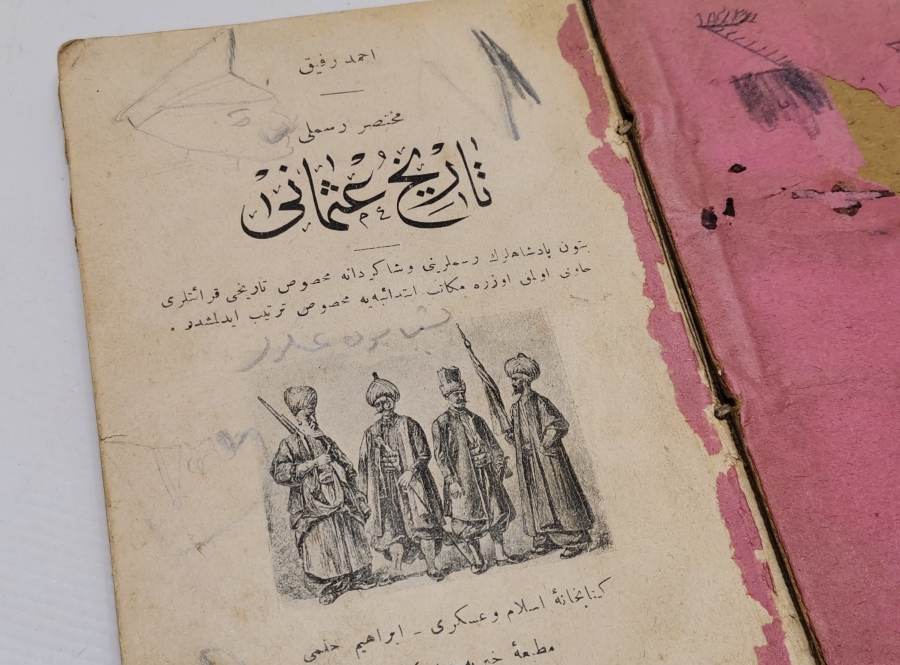 احمد رفيق
مختصر رسملى
تاريخ عثمانى
بتون پادشاهلرك رسملرينى و شاكردانه مخصوص تاريخى قرائتلرى
حاوى اولمق اوزره مكاتب ابتدائيه‌يه مخصوص ترتيب ايدلمشدر .
كتابخانۀ اسلام و عسكرى - ابراهيم حلمى
مطبعۀ خيريه